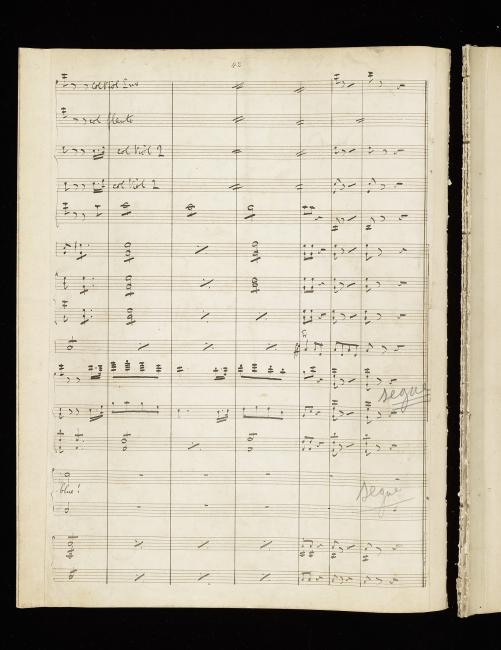 col Viol Imo
col flauto
col Viol 2
col Viol 2
segue
blue!
segue